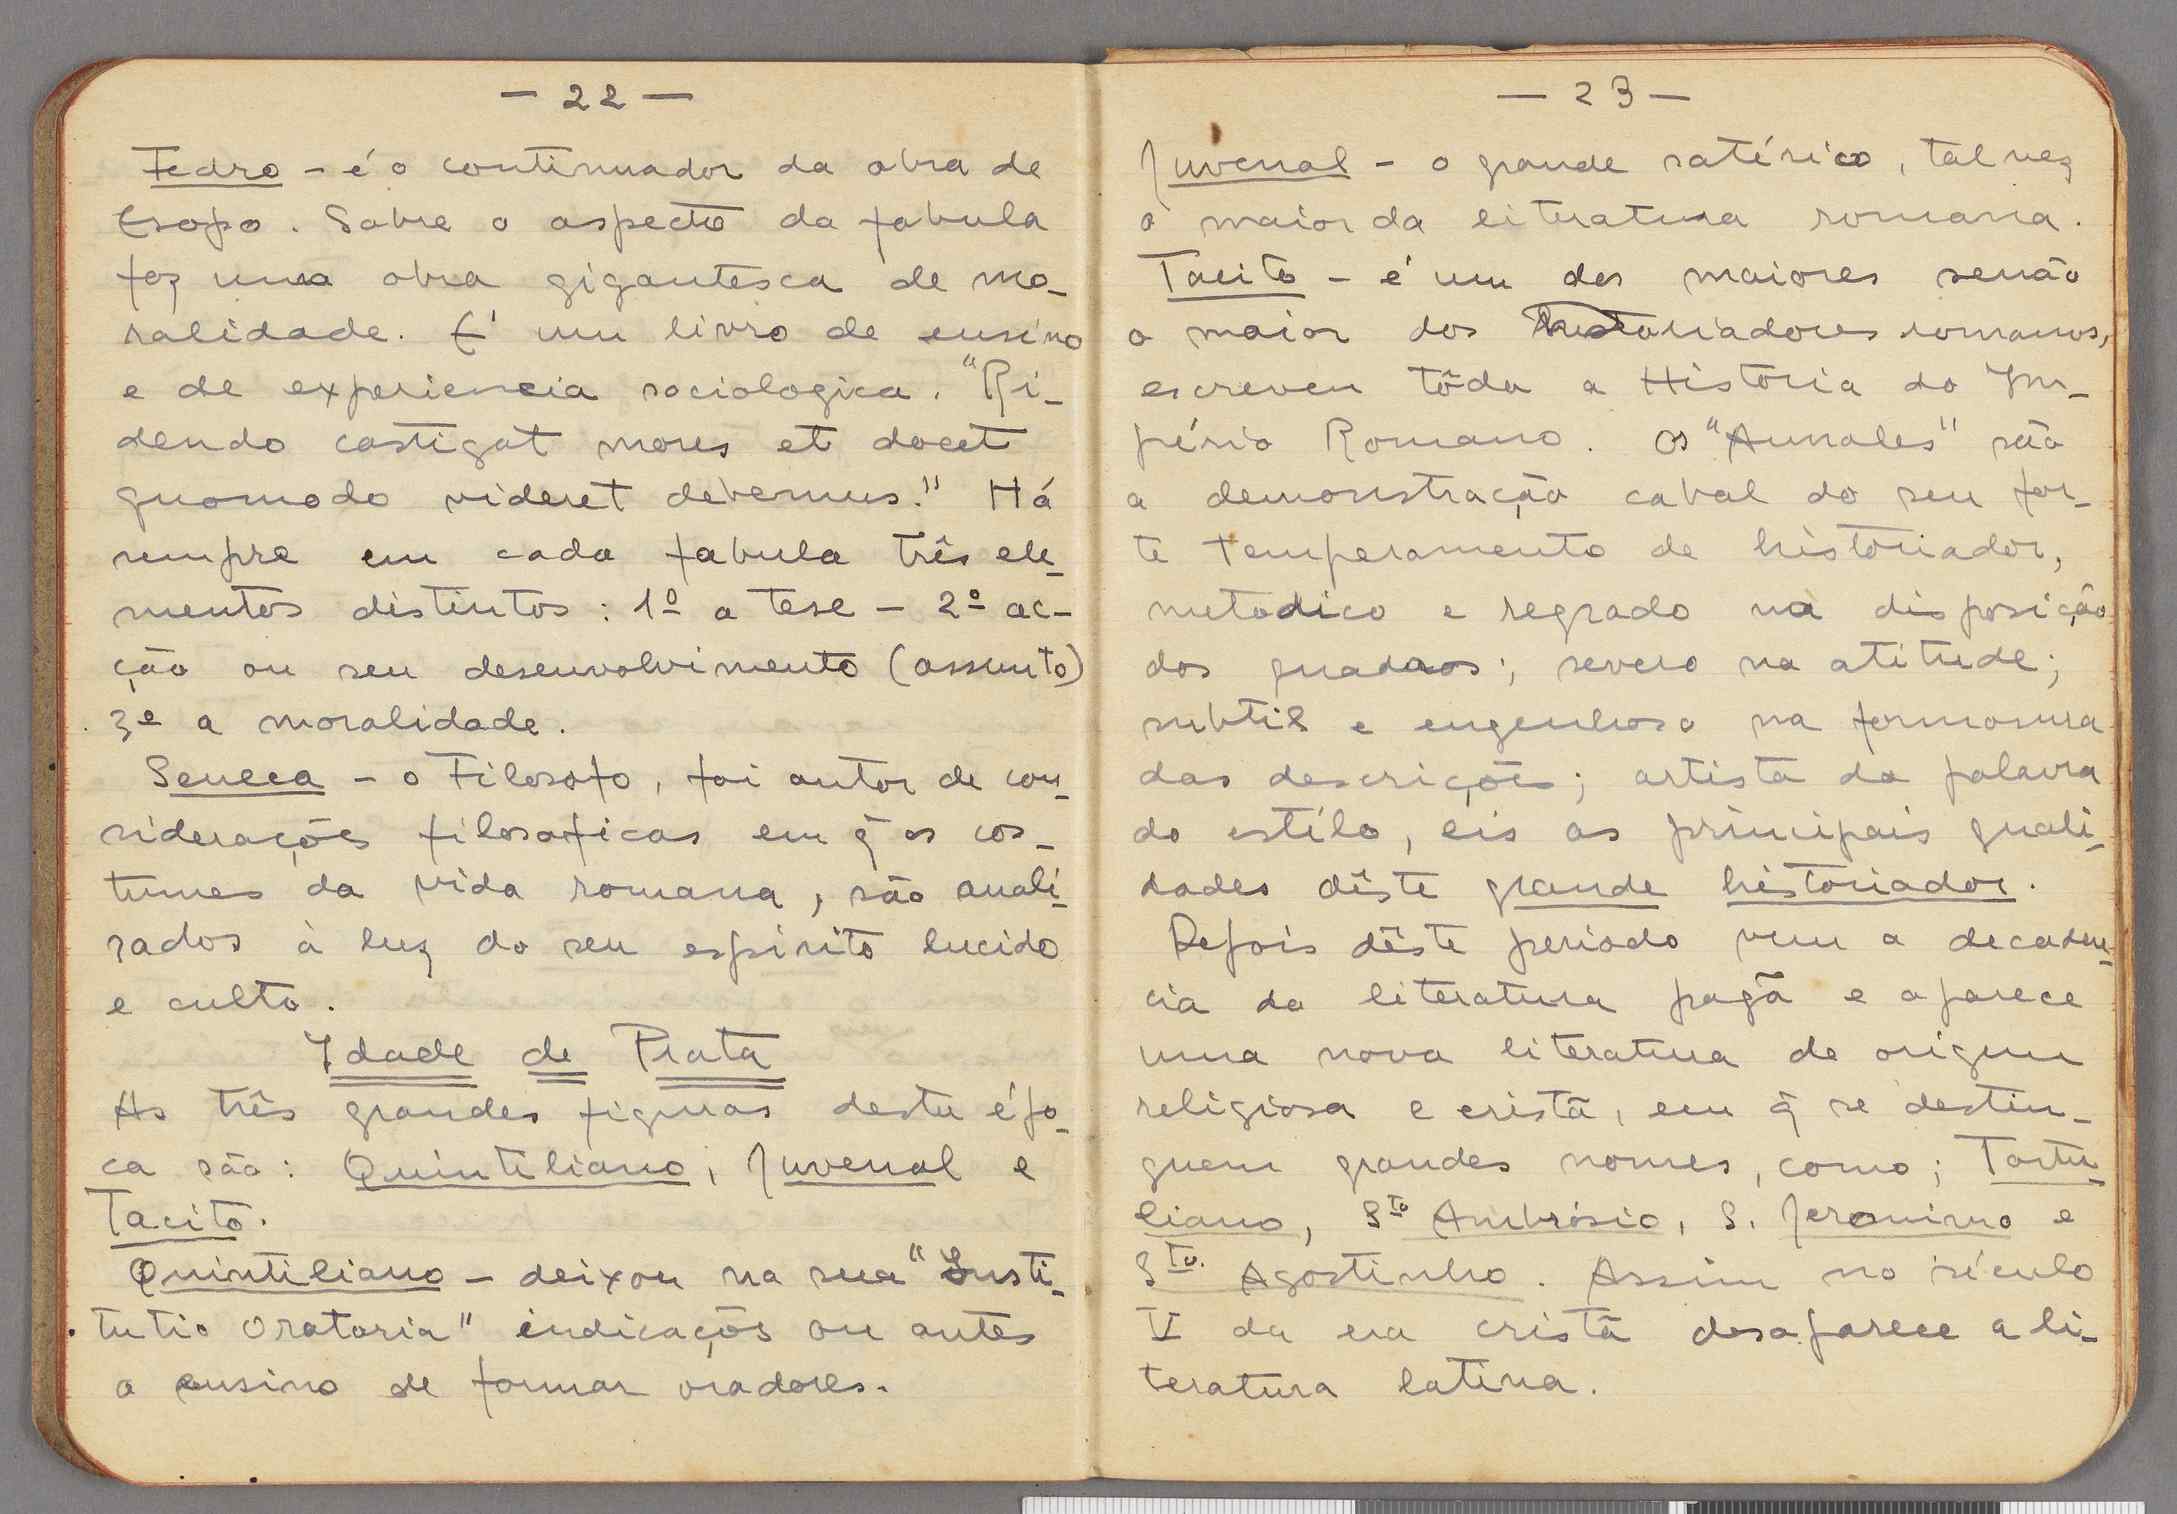 — 22 —
Fedro - é o continuador da obra de
Esopo. Sobre o aspecto da fabula
fez uma obra gigantesca de mo-
ralidade. É um livro de ensino
e de experiencia sociologica. "Ri-
dendo castigat mores et docet
quomodo videret debemus." Há
sempre em cada fabula três ele-
mentos distintos: 1º a tese - 2º ac-
ção ou seu desenvolvimento (assunto)
3ª a moralidade.
Seneca - o Filosofo, foi autor de con-
siderações filosoficas em q̃ os cos-
tumes da vida romana, são anali-
sados à luz do seu espirito lucido
e culto.
Idade de Prata
As três grandes figuras desta épo-
ca são: Quintiliano, Juvenal e
Tacito.
Quintiliano - deixou na sua "Insti-
tutio Oratoria" indicações ou antes
o ensino de formar oradores.
— 23 —
Juvenal - o grande satírico, talvez
o maior da literatura romana.
Tacito - é um dos maiores senão
o maior dos historiadores romanos,
escreveu tôda a História do Im-
pério Romano. Os "Annales" são
a demonstração cabal do seu for-
te temperamento de historiador,
metodico e regrado na disposição
dos quadros; severo na atitude;
subtil e engenhoso na formosura
das descrições; artista da palavra
do estilo, eis as principais quali-
dades dêste grande historiador.
Depois dêste periodo vem a decaden-
cia da literatura pagã e aparece
uma nova literatura de origem
religiosa e cristã, em q̃ se destin-
guem grandes nomes, como; Tertu-
liano, Sto Ambrósio, S. Jeronimo e
Sto. Agostinho. Assim no século
V da era cristã desaparece a li-
teratura latina.